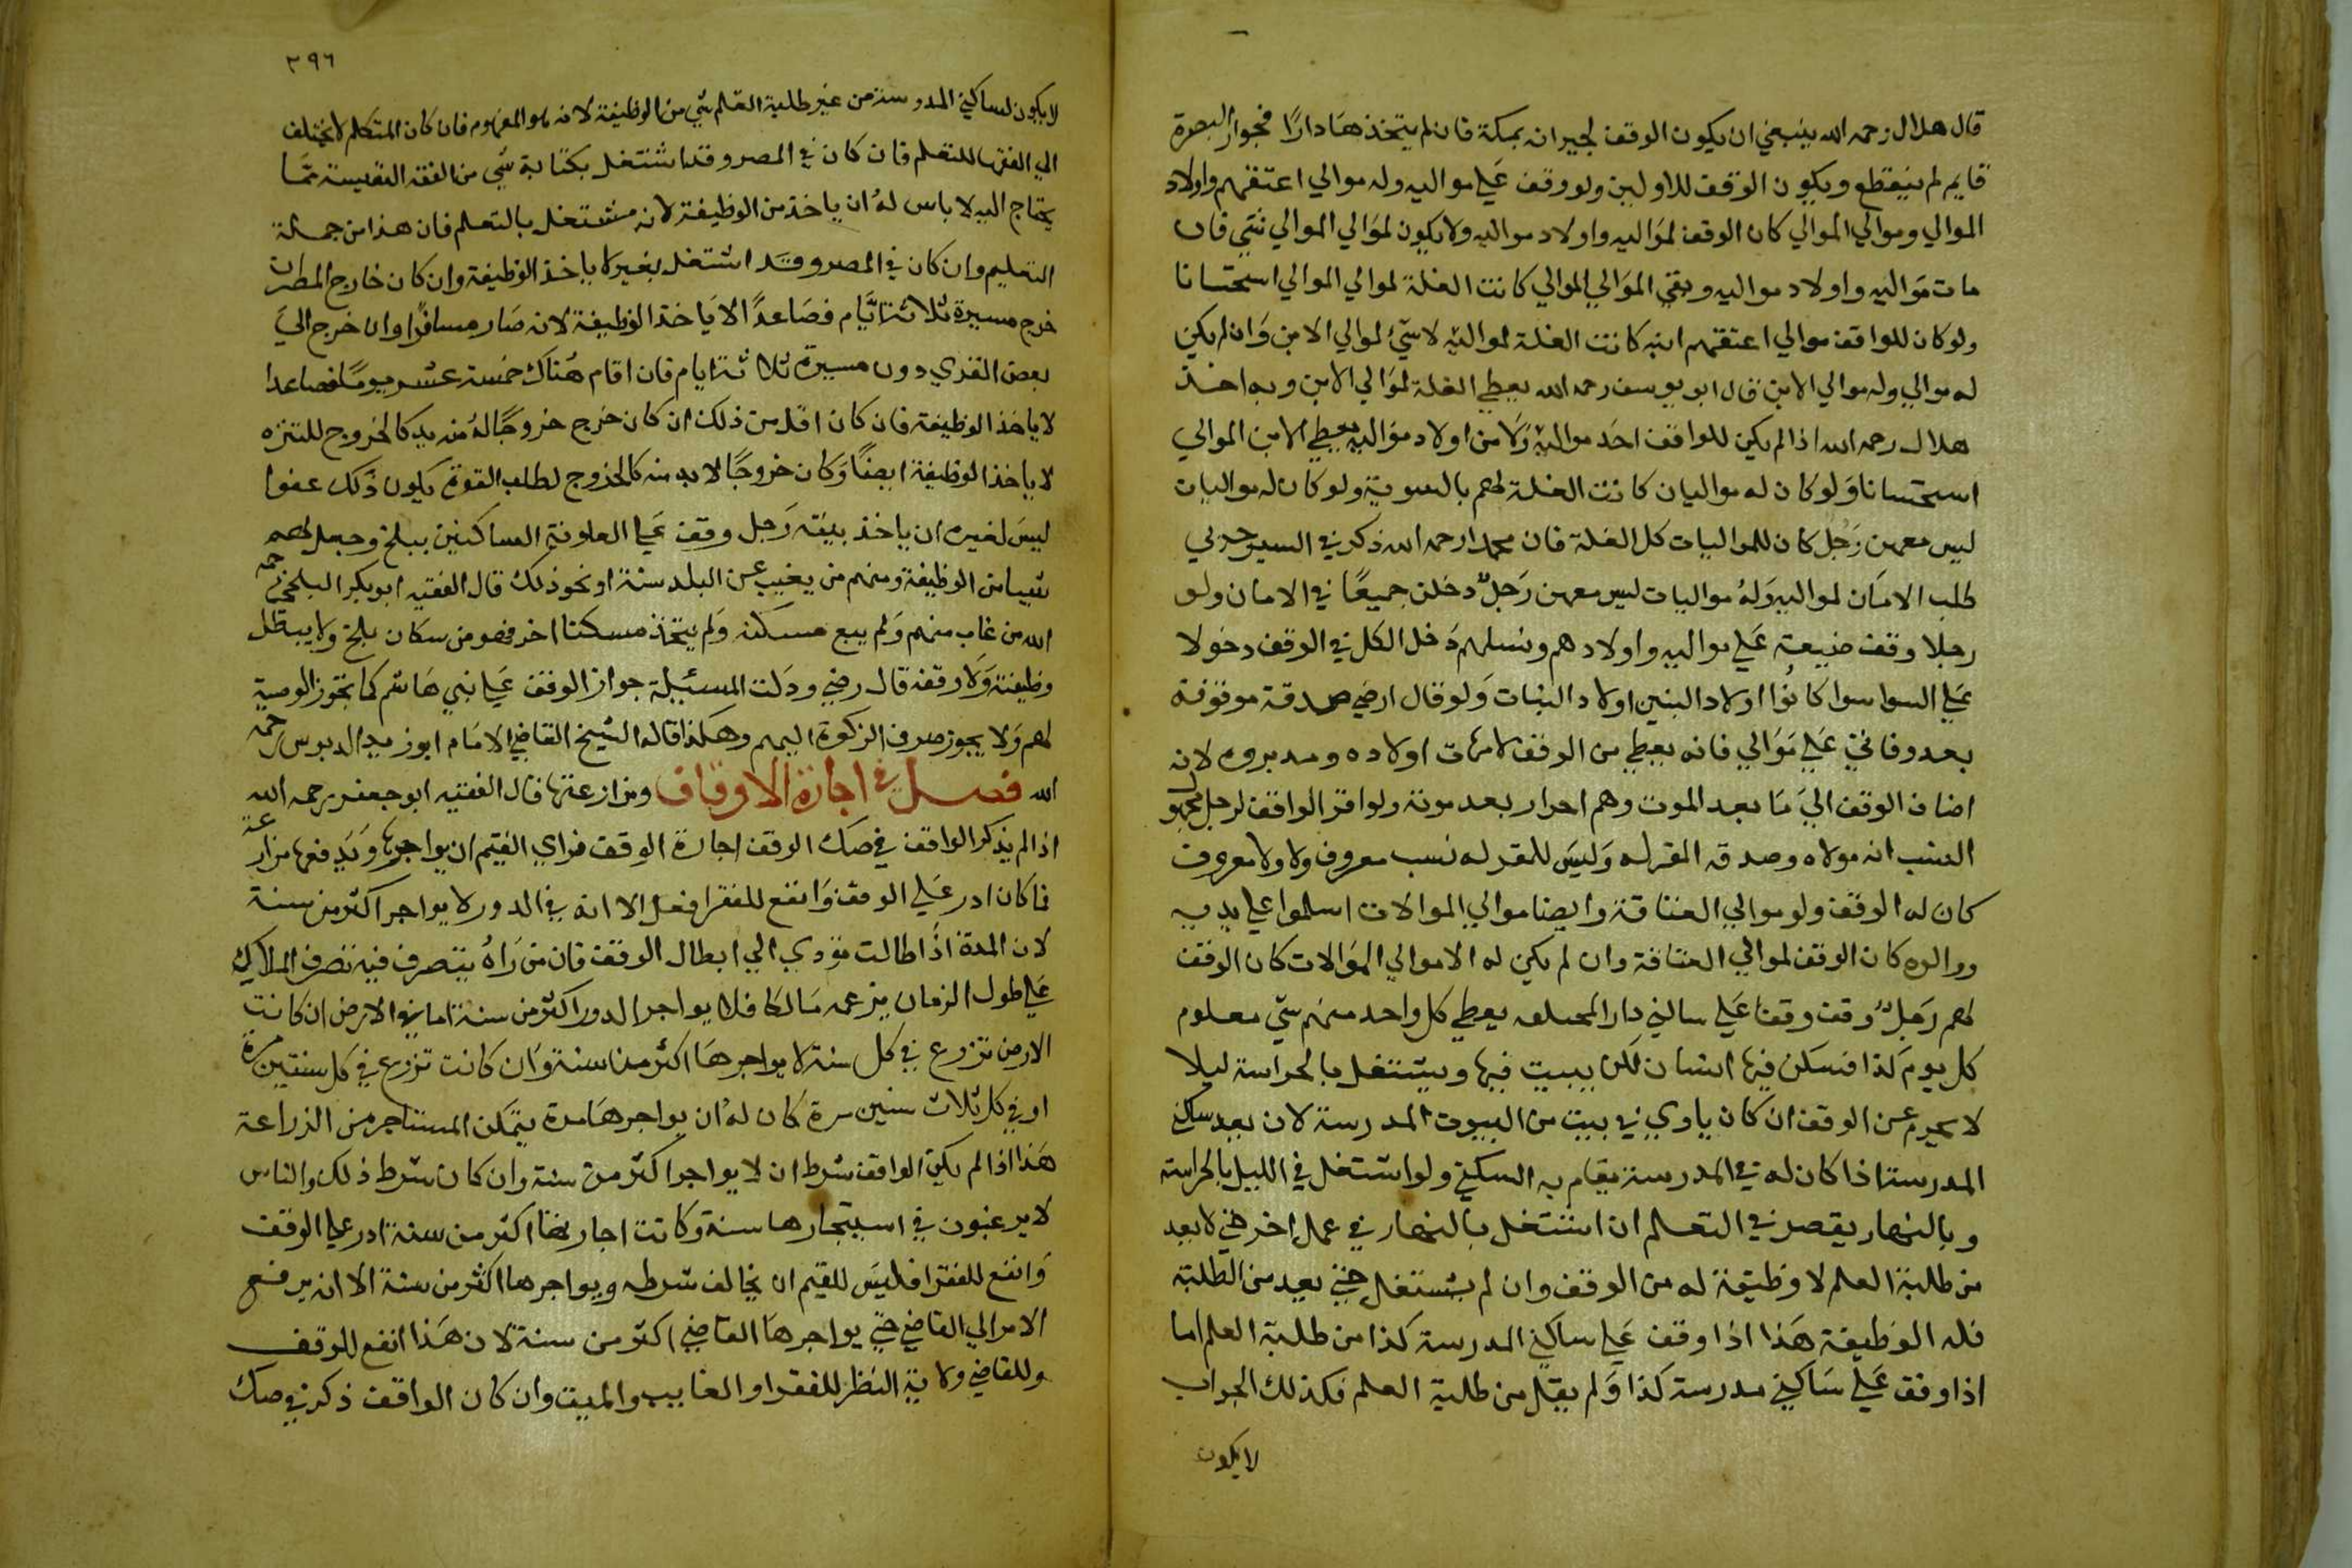 قال هلال رحمه الله ينبغي ان يكون الوقف لجيرانه بمكة فان لم يتخذ هها دارًا فجوار البصرة
قايم لم ينقطع ويكون الوقف للاولين ولو وقف علي مواليه وله موالي اعتقهم واولاد
الموالي وموالي الموالي كان الوقف لمواليه واولاد مواليه ولا يكون لموالي الموالي شي فان
مات مواليه واولاد مواليه وبقي الموالي الموالي كانت الغلة لموالي الموالي استحسانا
ولو كان للواقف موالي اعتقهم ابنه كانت الغلة لمواليه لا شيء لموالي الابن وان لم يكن
له موالي وله موالي الابن قال ابو يوسف رحمه الله يعطي الغلة لموالي الابن وبه اخذ
هلال رحمه الله اذا لم يكن للواقف احد مواليه ولا من اولاد مواليه يعطي الابن الموالي
استحسانا ولو كان له مواليان كانت الغلة لهم بالسوية ولو كان له مواليات
ليس معهن رجل كان للمواليات كل الغلة فان محمدا رحمه الله ذكر في السير حربي
طلب الامان لمواليه وله مواليات ليس معهن رجل دخلن جميعًا في الامان ولو
رجلا وقف ضيعة علي مواليه واولادهم ونسلهم دخل الكل في الوقف دخولا
علي السوا سوا كانوا اولاد البنين اولاد البنات ولو قال ارضي صدقة موقوفة
بعد وفاتي علي موالي فانه يعطي من الوقف لامهات اولاده ومدبروه لانه
اضاف الوقف الي ما بعد الموت وهم احرار بعد موته ولو اقر الواقف لرجل مجهول
النسب انه مولاه وصدقه المقر له وليس للمقر له نسب معروف ولا ولا معروف
كان له الوقف ولو موالي العتاقة وايضا موالي الموالات اسلموا علي يديه
ووالوه كان الوقف لموالي العتاقة وان لم يكن له الا موالي الموالات كان الوقف
لهم رجل وقف وقفا علي ساكني دار يعطي كل واحد منهم شي معلوم
كل يوم كذا فسكن فيها انسان لكن يبيت فيها ويشتغل بالحراسة ليلا
لا يحرم عن الوقف ان كان ياوي في بيت من البيوت المدرسة لان يعد ساكن
المدرسة اذا كان له في المدرسة يقام به السكني ولو اشتغل في الليل بالحراسة
وبالنهار يقصر في التعلم ان اشتغل بالنهار في عمل اخر حتي لا يعد
من طلبة العلم لا وظيفة له من الوقف وان لم يشتغل حتي يعد من الطلبة
فله الوظيفة هذا اذا وقف علي ساكني المدرسة كذا من طلبة العلم اما
اذا وقف علي ساكني مدرسة كذا ولم يقل من طلبة العلم فكذلك الجواب
لا يكون
٣٩٦
لا يكون لساكني المدرسة من غير طلبة العلم شي من الوظيفة لانه هو المفهوم فان كان المتكلم لا يختلف
الي الفقها للتعلم فان كان في المصر وقد اشتغل بكتابة شي من الفقه النفيسة مما
يحتاج اليه لا باس له ان ياخذ من الوظيفة لانه مشتغل بالتعلم فان هذا من جملة
التعليم وان كان في المصر وقد اشتغل بغير لا ياخذ الوظيفة وان كان خارج المصر ان
خرج مسيرة ثلاثة ايام فصاعدًا لا ياخذ الوظيفة لانه صار مسافرا وان خرج الي
بعض القري دون مسيرة ثلاثة ايام فان اقام هناك خمسة عشر يومًا فصاعدا
لا ياخذ الوظيفة فان كان اقل من ذلك ان كان خرج خروجًا له منه بد كالخروج للتنزه
لا ياخذ الوظيفة ايضًا وكان خروجًا لا بد منه كالخروج لطلب القوة يكون ذلك عفوا
ليس لغيره ان ياخذ بيته رجل وقف علي العلوفة الساكنين ببلخ وجعل لهم
شيا من الوظيفة ومنهم من يغيب عن البلد سنة او نحو ذلك قال الفقيه ابو بكر البلخي رحمه
الله من غاب منهم ولم يبع مسكنه ولم يتخذ مسكنا اخر فهو من سكان بلخ ولا يبطل
وظيفته ولا وقفه قال رضي ودلت المسئيلة جواز الوقف علي بني هاشم كما تجوز الوصية
لهم ولا يجوز صرف الزكوة اليهم وهكذا قاله الشيخ القاضي الامام ابو زيد الدبوسي رحمه
الله فصل في اجازة الاوقاف ومزارعتها قال الفقيه ابو جعفر رحمه الله
اذا لم يذكر الواقف في صك الوقف اجارة الوقف فراي القيم ان يواجرها ويدفعها مزارعة
فما كان ادر علي الوقف وانفع للفقرا فعل الا انه في الدور لا يواجر اكثر من سنة
لان المدة اذا طالت تؤدي الي ابطال الوقف فان من راه يتصرف فيه تصرف الملاك
علي طول الزمان يزعمه مالكا فلا يواجر الدور اكثر من سنة اما في الارض ان كانت
الارض تزرع في كل سنة لا يواجرها اكثر من سنة وان كانت تزرع في كل سنتين مرة
او في كل ثلاث سنين مرة كان له ان يواجرها مدة يتمكن المستاجر من الزراعة
هذا اذا لم يكن الواقف شرط ان لا يواجر اكثر من سنة وان كان شرط ذلك والناس
لا يرغبون في استيجارها سنة وكانت اجارتها اكثر من سنة ادر علي الوقف
وانفع للفقرا فليس للقيم ان يخالف شرطه ويواجرها اكثر من سنة الا انه يرفع
الامر الي القاضي حتي يواجرها القاضي اكثر من سنة لان هذا انفع للوقف
وللقاضي ولاية النظر للفقرا والغايب والميت وان كان الواقف ذكر في صك